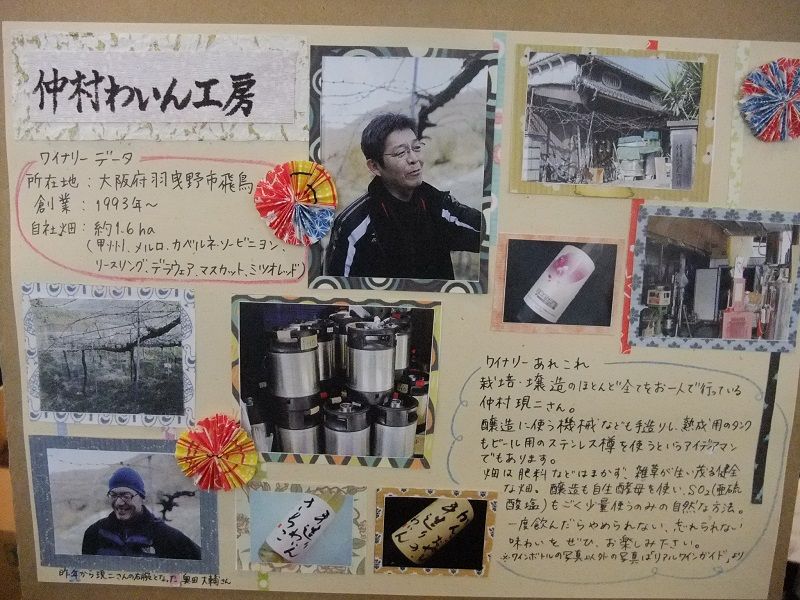 仲村わいん工房
ワイナリー データ
所在地 : 大阪府羽曳野市飛鳥
創業 : 1993年〜
自社畑 : 約1.6ha
(甲州、メルロ、カベルネ・ソービニヨン、
リースリング、デラウェア、マスカット、ミツオレッド)
ワイナリー あれこれ
栽培・醸造のほとんど全てをお一人で行っている
仲村現二さん。
醸造に使う機械なども手造りし、熟成用のタンク
もビール用のステンレス樽を使うというアイデアマン
でもあります。
畑は肥料などはまかず、雑草が生い茂る健全
な畑。醸造も自生酵母を使い、SO₂(亜硫
酸塩)もごく少量使うのみの自然な方法。
一度飲んだらやめられない、忘れられない
味わいを ぜひ、お楽しみ下さい。
※ワインボトルの写真以外の写真は「リアルワインガイド」より
昨年から現二さんの右腕となった 奥田大輔さん
手造りわいん
さちこ
がんこおやじの
手造りわいん